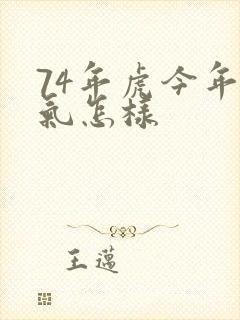 74年虎今年
氣怎樣
王邁